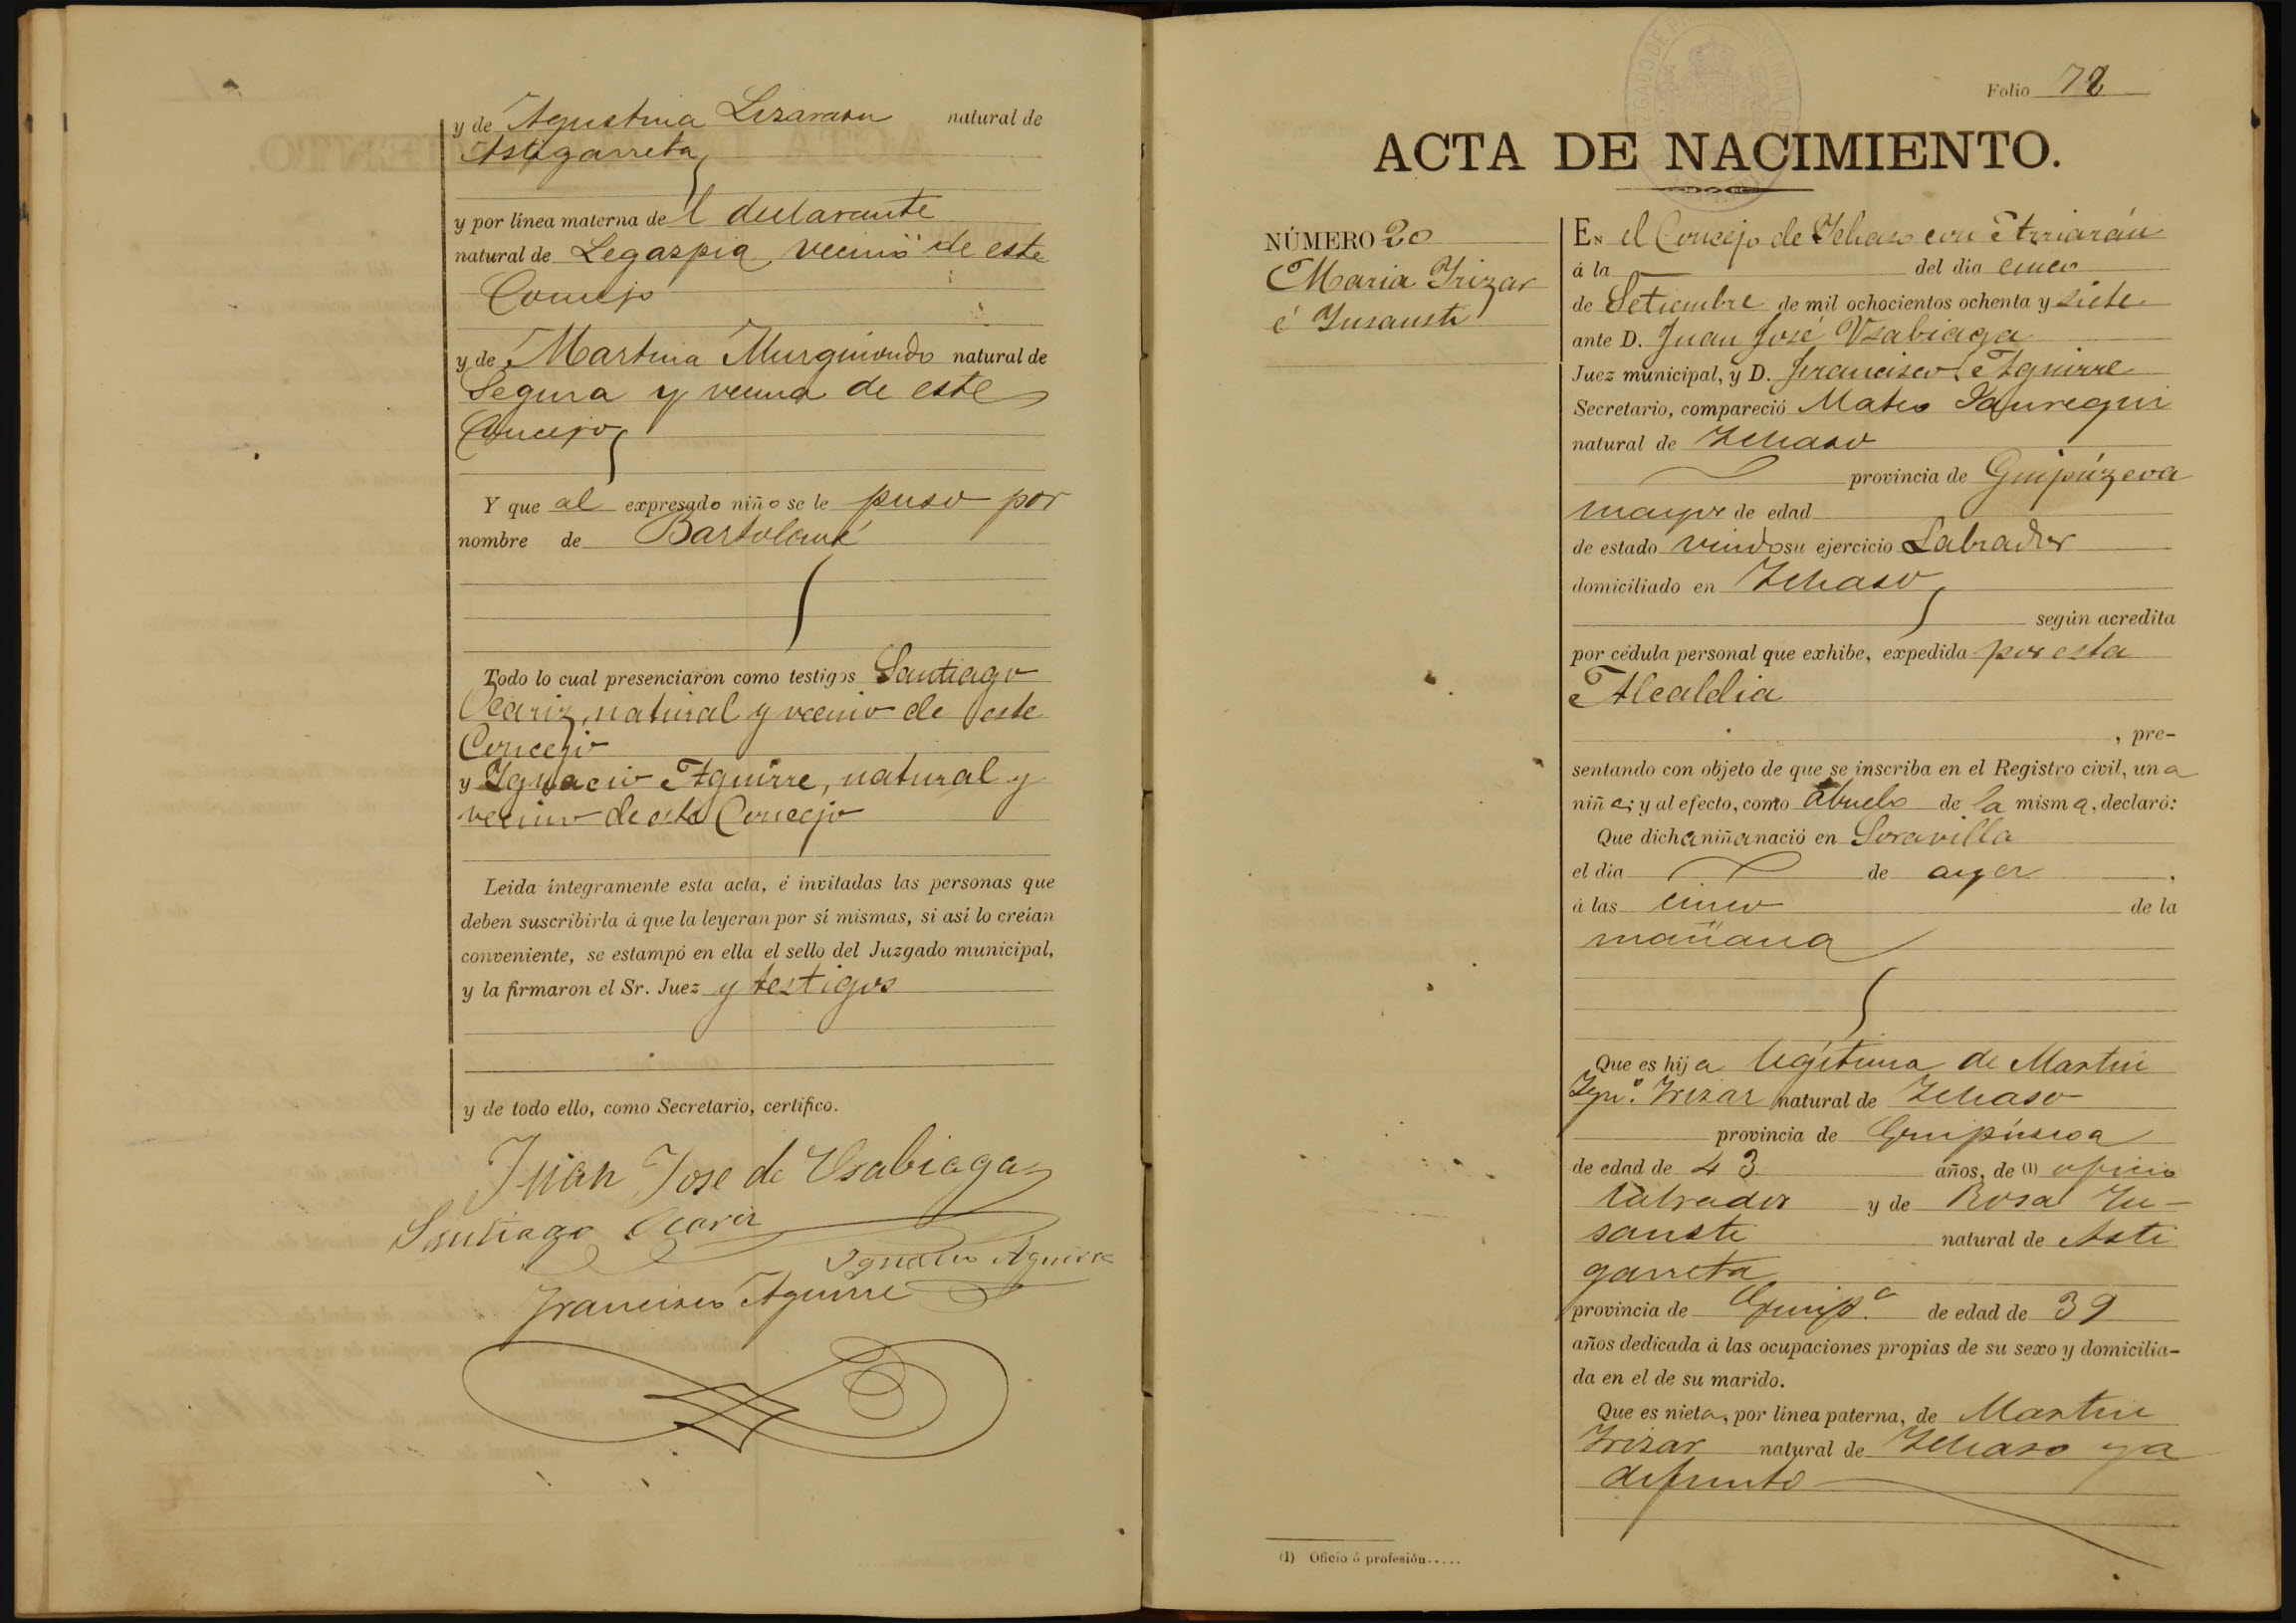 y de Agustina Lizarazu natural de
Astigarreta
y por línea materna del declarante
natural de Legazpia, vecino de este
Concejo
y de Martina Murguiondo natural de
Segura y vecina de este
Concejo
Y que al expresado niño se le puso por
nombre de Bartolomé
Todo lo cual presenciaron como testigos Santiago
Ocariz, natural y vecino de este
Concejo
y Ygnacio Aguirre, natural y
vecino de este Concejo
Leida íntegramente esta acta, é invitadas las personas que
deben suscribirla á que la leyeran por sí mismas, si así lo creían
conveniente, se estampó en ella el sello del Juzgado municipal,
y la firmaron el Sr. Juez y testigos
y de todo ello, como Secretario, certifico.
Juan Jose de Usabiaga
Santiago Ocariz
Ignacio Aguirre
Francisco Aguirre
Folio 72
ACTA DE NACIMIENTO.
NÚMERO 20
Maria Yrizar
é Ynsausti
En el Concejo de Ychaso con Arriarán
á la del dia cinco
de Setiembre de mil ochocientos ochenta y siete
ante D. Juan José Usabiaga
Juez municipal, y D. Francisco Aguirre
Secretario, compareció Mateo Jauregui
natural de Ychaso
provincia de Guipúzcoa
mayor de edad
de estado viudo su ejercicio Labrador
domiciliado en Ychaso
según acredita
por cédula personal que exhibe, expedida por esta
Alcaldia
, pre-
sentando con objeto de que se inscriba en el Registro civil, una
niña; y al efecto, como abuelo de la misma, declaró:
Que dicha niña nació en Soravilla
el dia de ayer.
á las cinco de la
mañana
Que es hija legítima de Martin
Ygnº. Yrizar natural de Ychaso
provincia de Guipúzcoa
de edad de 43 años, de (1) oficio
labrador y de Rosa Yn-
sausti natural de Asti
garreta
provincia de Guipª. de edad de 39
años dedicada á las ocupaciones propias de su sexo y domicilia-
da en el de su marido.
Que es nieta, por línea paterna, de Martin
Yrizar natural de Ychaso ya
difunto
(1) Oficio ó profesión.....